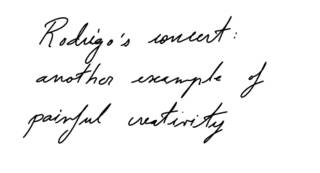 Rodrigo's concert:
another example of
painful creativity